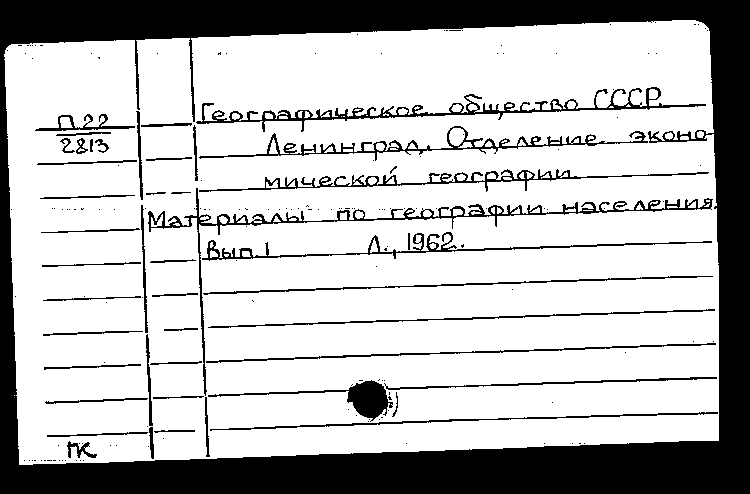 П22
2813
Географическое общество СССР.
Ленинград. Отделение эконо-
мической географии.
Материалы по географии населения.
Вып. 1 Л., 1962.
ПК